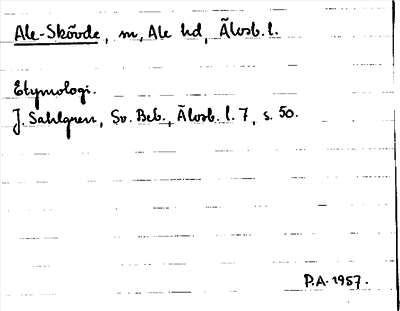 Ale-Skövde, m, Ale hd, Älvsb. l.
Etymologi.
J. Sahlgren, Sv. Beb., Älvsb. l. 7, s. 50.
P.A. 1957.